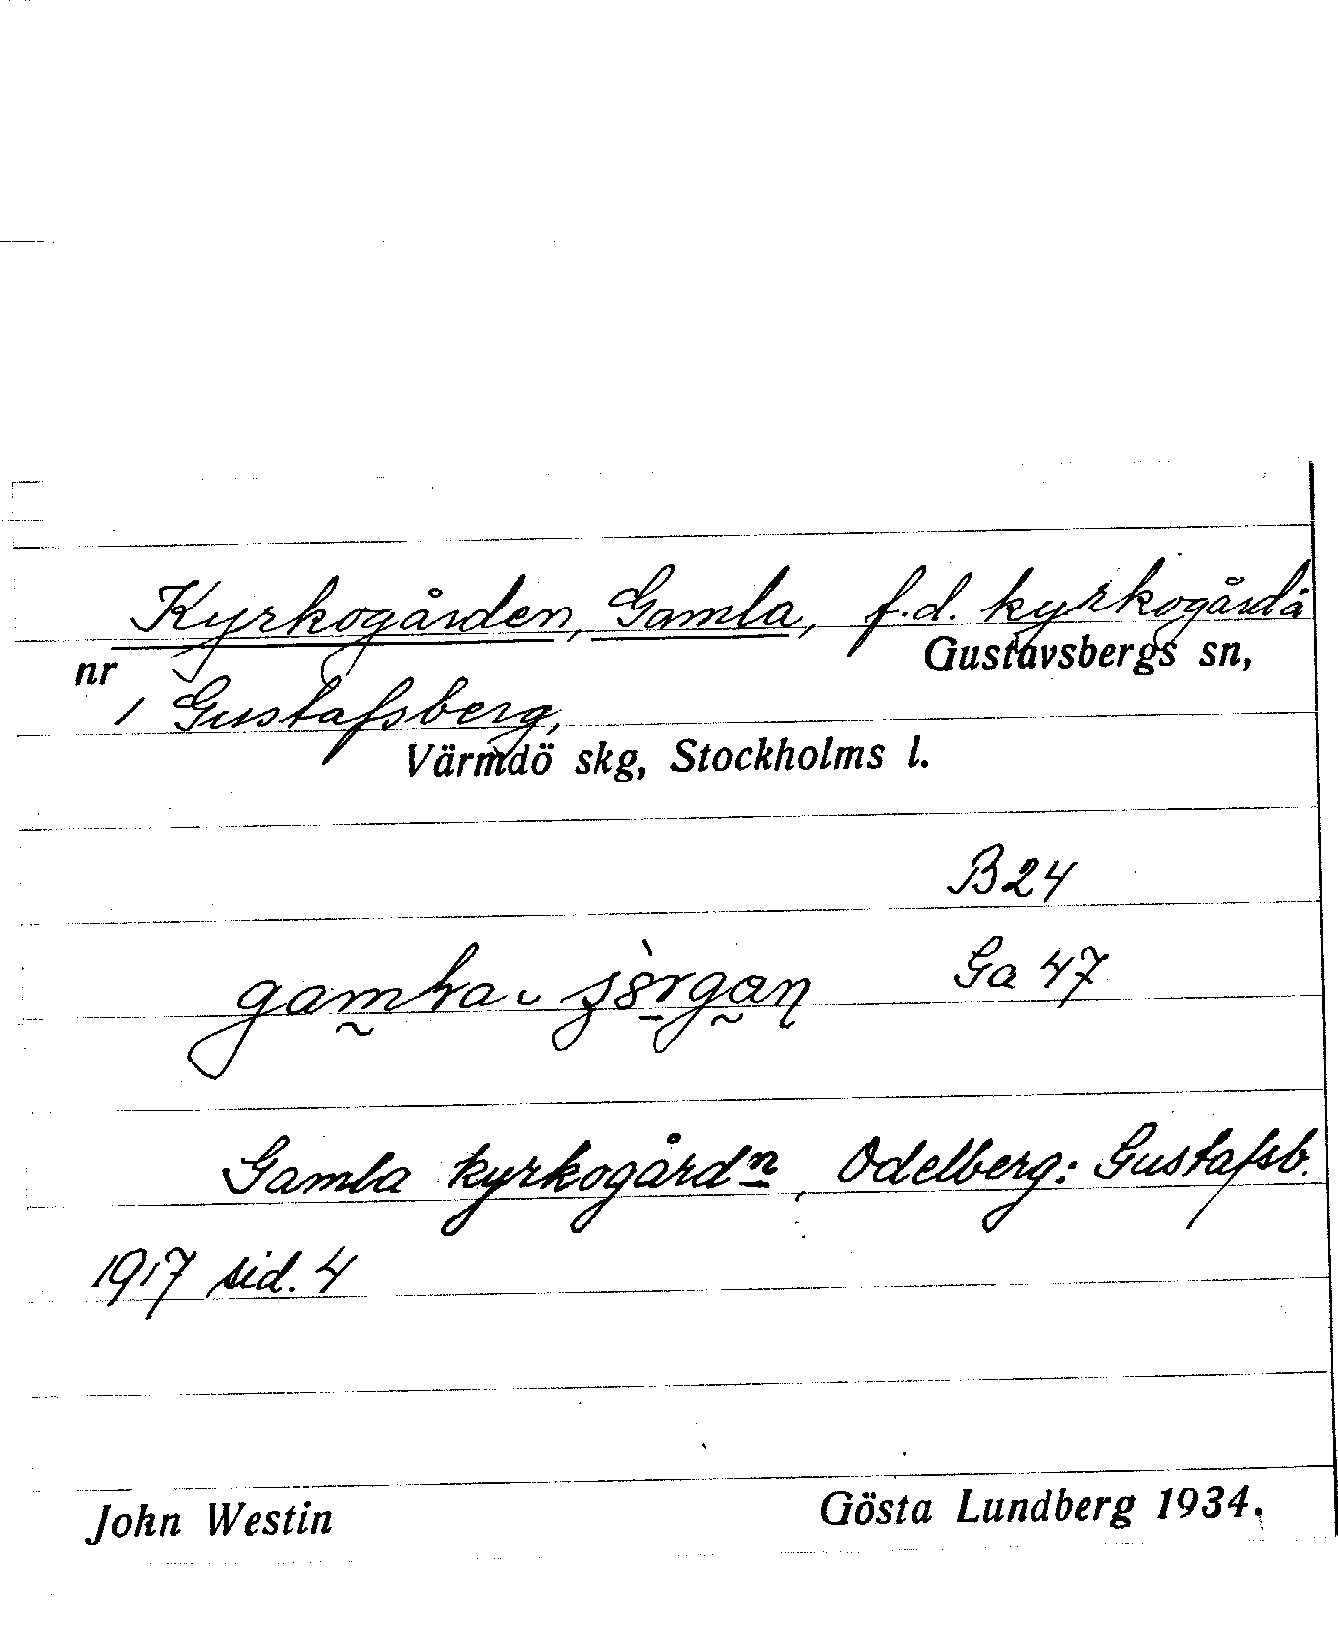 Kyrkogården, Gamla, f.d. kyrkogård å
Gustavsbergs sn,
nr
1 Gustafsberg,
Värmdö skg, Stockholms l.
B24
Ga 47
Gamla kyrkogårdn, Odelberg: Gustafsb.
1917 sid. 4
John Westin
Gösta Lundberg 1934.